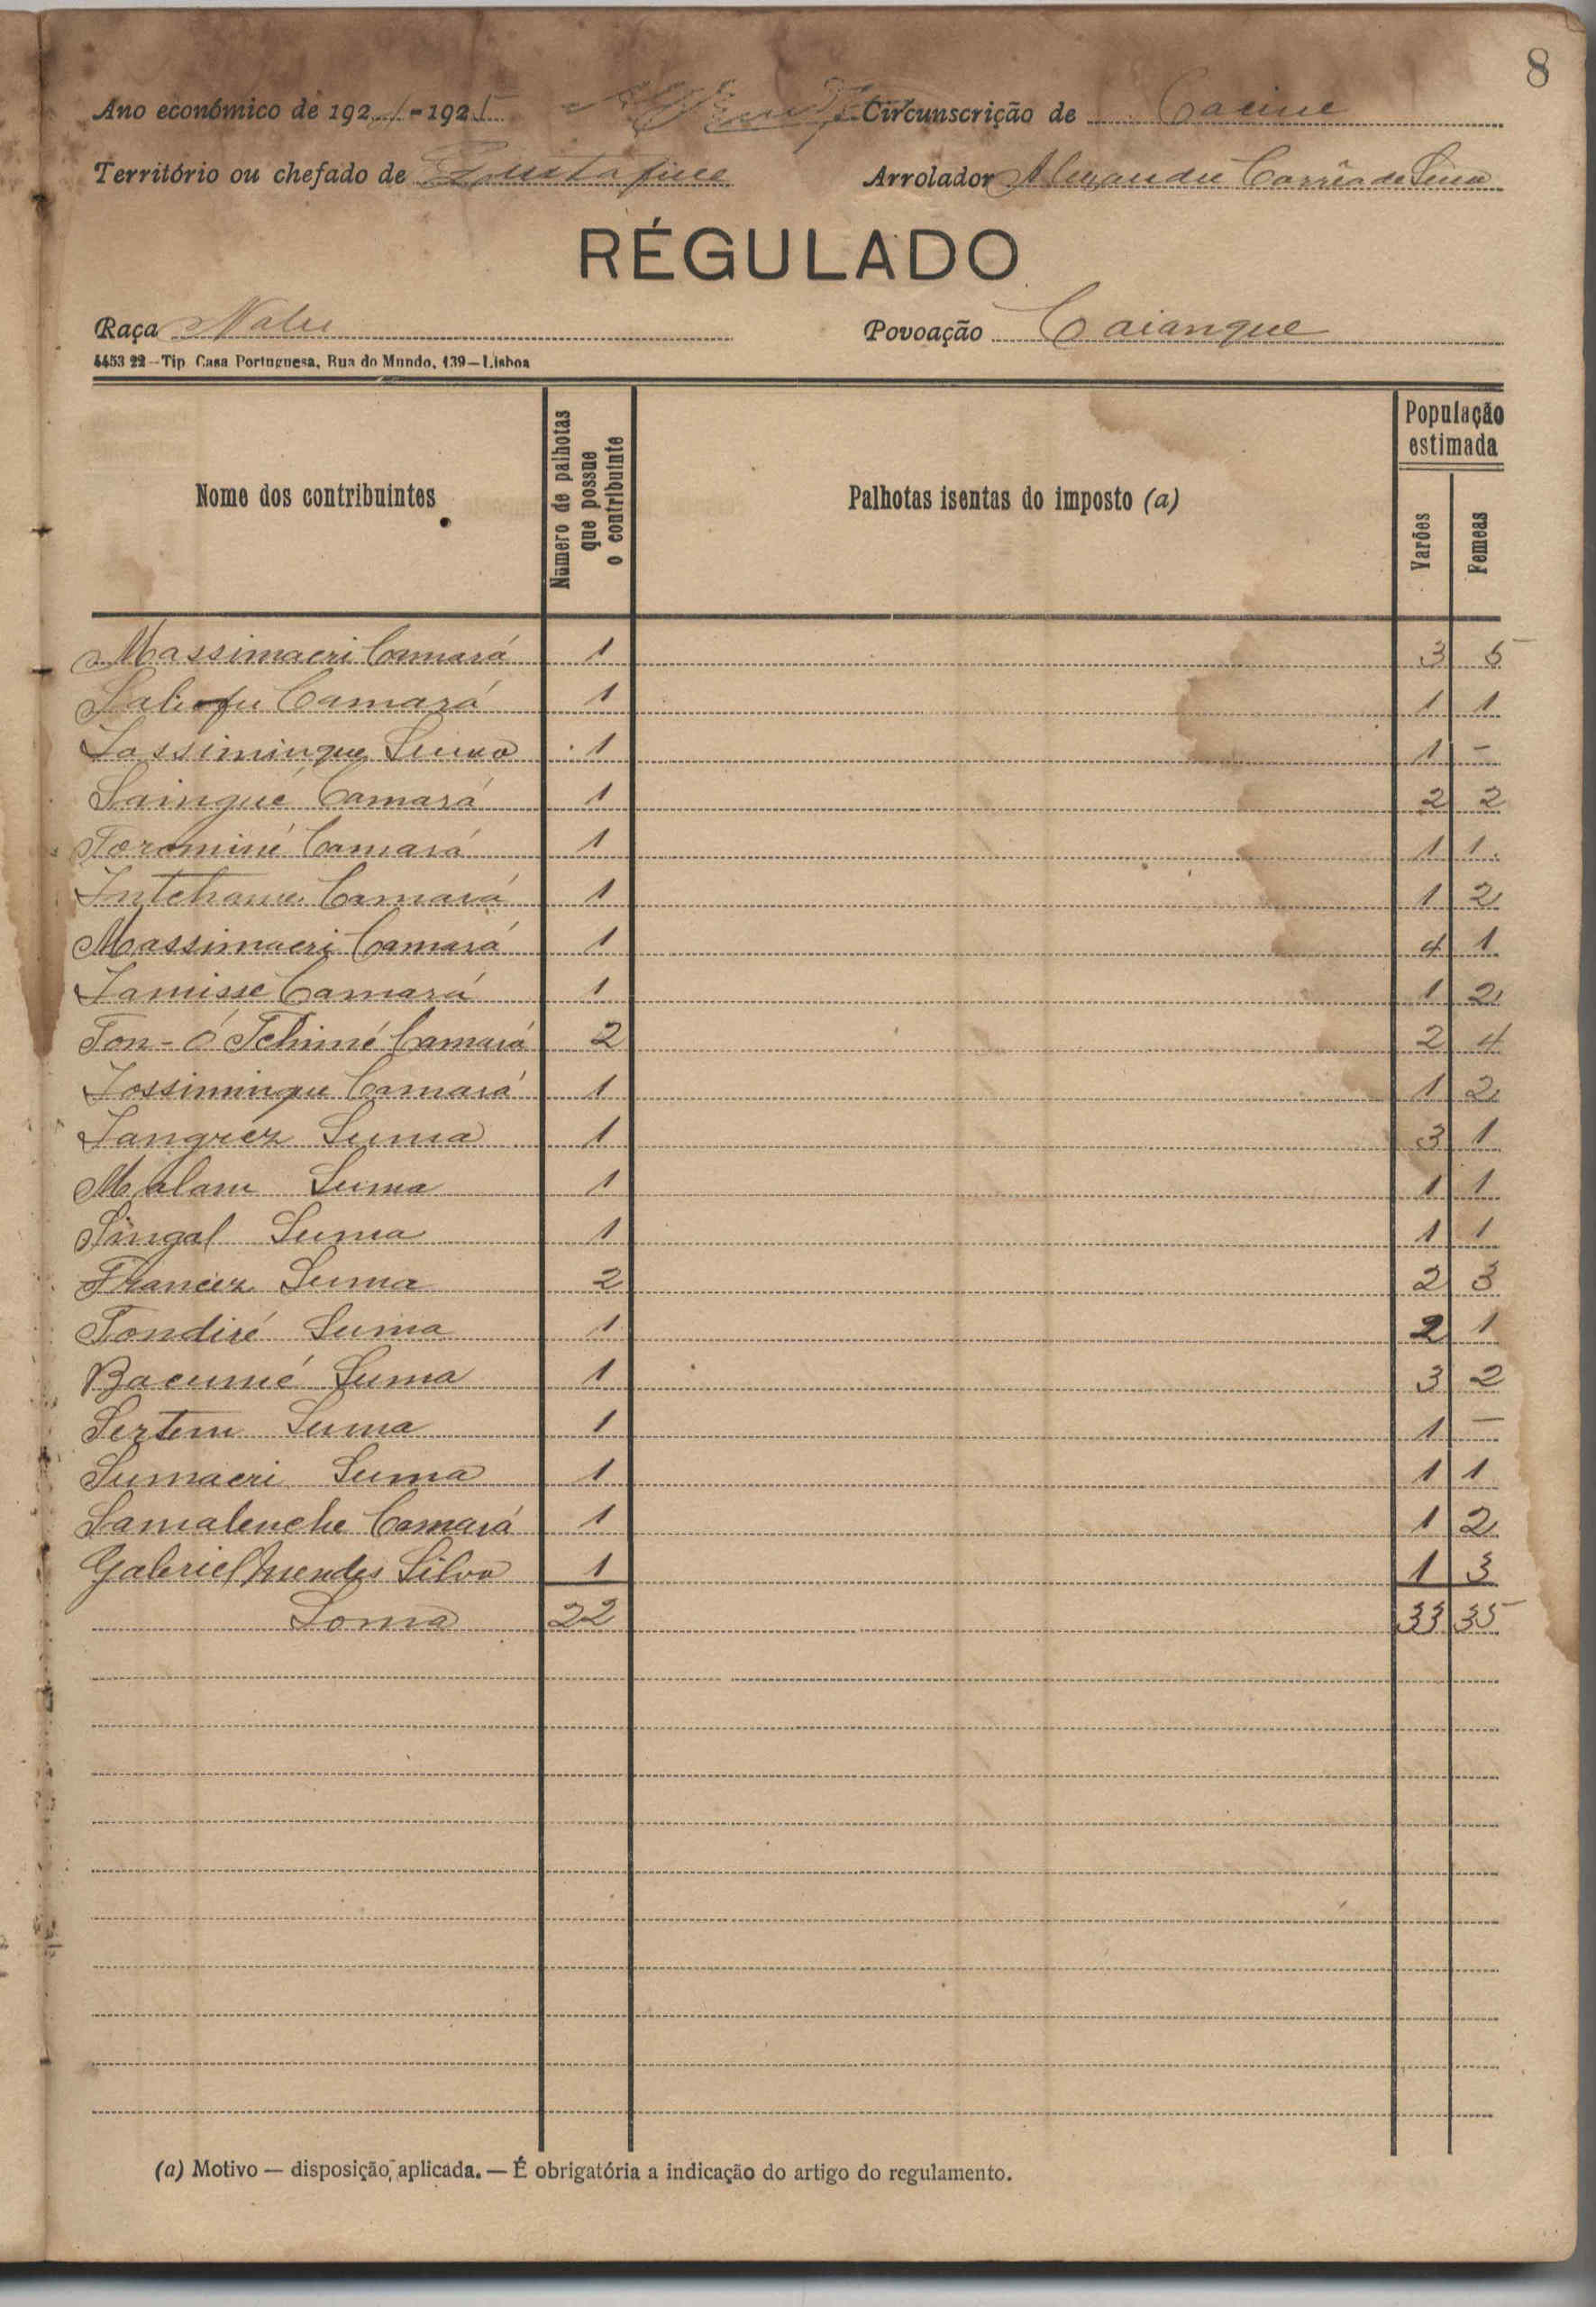 8
Ano económico de 1924-1925 Circunscrição de Cacine
Território ou chefado de Arrolador Alexandre Corrêa de
RÉGULADO
Raça Nalu Povoação Caianque
4453 22—Tip. Casa Portuguesa, Rua do Mundo, 139—Lisboa
Nome dos contribuintes Número de palhotas que possue o contribuinte Palhotas isentas do imposto (a) População estimada Varões Femeas
Massimacri Camará 1 3 5
Camará 1 1 1
Suma 1 1 -
Saingué Camará 1 2 2
Camará 1 1 1
Camará 1 1 2
Massimacri Camará 1 4 1
Lamisse Camará 1 1 2
Ton-ó Tchimé Camará 2 2 4
Camará 1 1 2
Suma 1 3 1
Malam Suma 1 1 1
Singal Suma 1 1 1
Francez Suma 2 2 3
Tondiré Suma 1 2 1
Bacumé Suma 1 3 2
Suma 1 1 -
Sumacri Suma 1 1 1
Samalenche Camará 1 1 2
Gabriel Mendes Silva 1 1 3
Soma 22 33 35
(a) Motivo — disposição aplicada. — É obrigatória a indicação do artigo do regulamento.